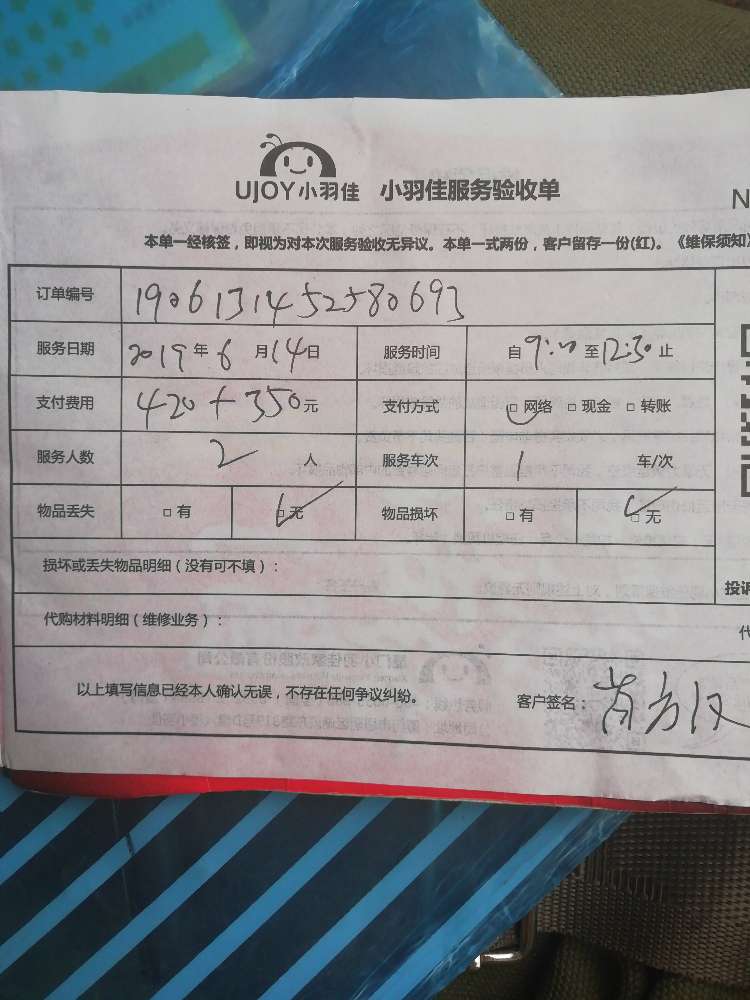 UJOY小羽佳 小羽佳服务验收单 N
本单一经核签，即视为对本次服务验收无异议。本单一式两份，客户留存一份(红)。《维保须知》
订单编号 1906131452580693
服务日期 2019年6月14日 服务时间 自9:00至12:30止
支付费用 420+350元 支付方式 □网络 □现金 □转账
服务人数 2人 服务车次 1 车/次
物品丢失 □有 □无 物品损坏 □有 □无
损坏或丢失物品明细（没有可不填）：
投诉
代购材料明细（维修业务）：
代
以上填写信息已经本人确认无误，不存在任何争议纠纷。 客户签名：